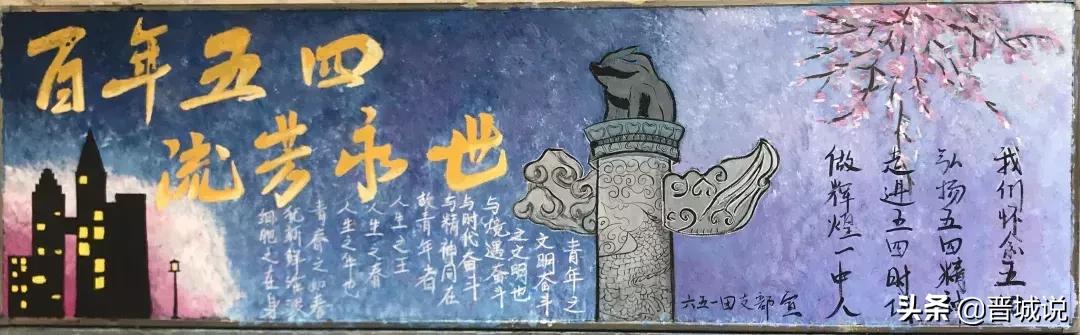 百年五四
流芳永世
青年之
文明奋斗
之文明也
与境遇奋斗
与时代奋斗
与精神同在
故青年者
人生之王
人生之春
人生之华也
青春之如春
新鲜活泼
细胞之在身
我们怀念五
弘扬五四精
走进五四时
做辉煌一中人
六五一团支部宣
头条 @晋城说